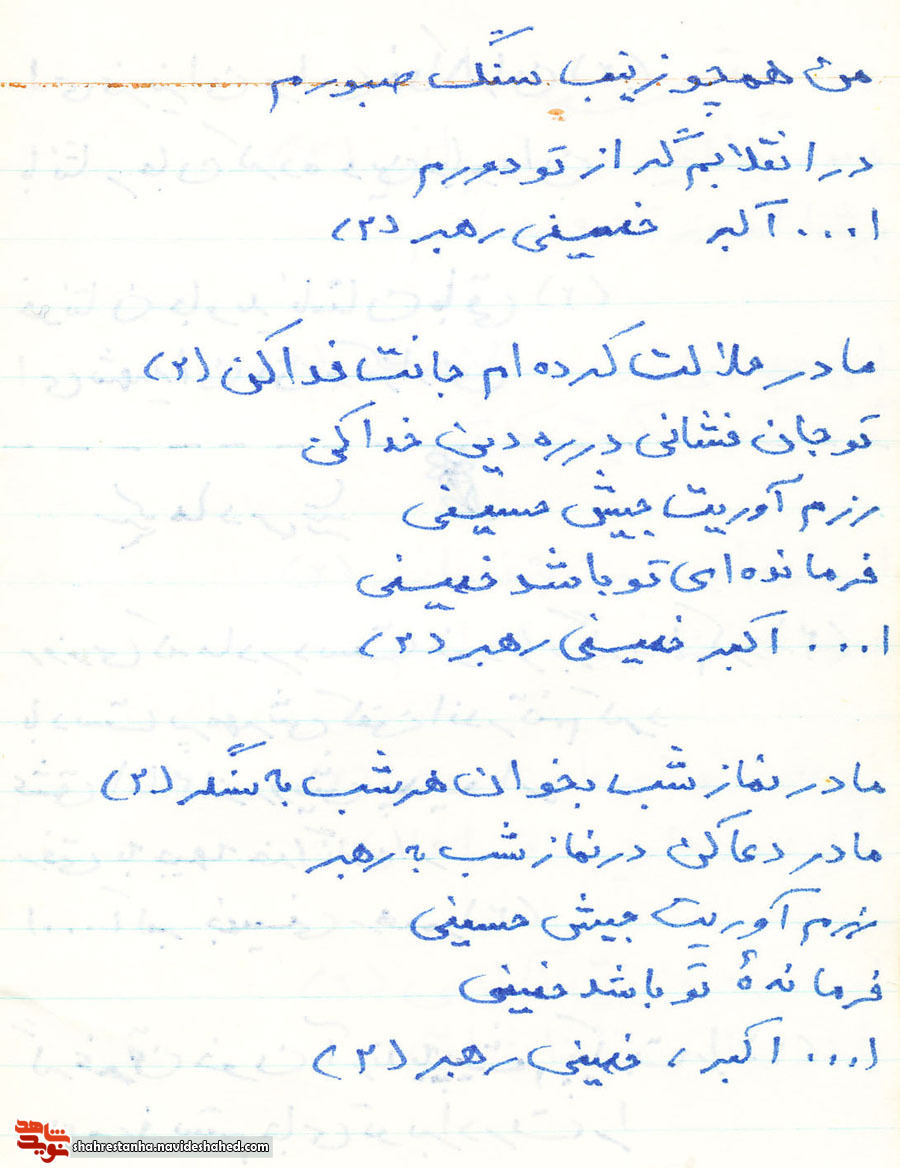 من همچو زینب سنگ صبورم
در انقلابم گر از تو دورم
ا... اکبر خمینی رهبر (۲)
مادر حلالت کرده ام جانت فدا کن (۲)
تو جان فشانی در ره دین خدا کن
رزم آوریت جیش حسینی
فرمانده ای تو باشد خمینی
ا... اکبر خمینی رهبر (۲)
مادر نماز شب بخوان هر شب به سنگر (۲)
مادر دعا کن در نماز شب به رهبر
رزم آوریت جیش حسینی
فرماندهٔ تو باشد خمینی
ا... اکبر، خمینی رهبر (۲)
نوید شاهد
shahrestanha.navideshahed.com